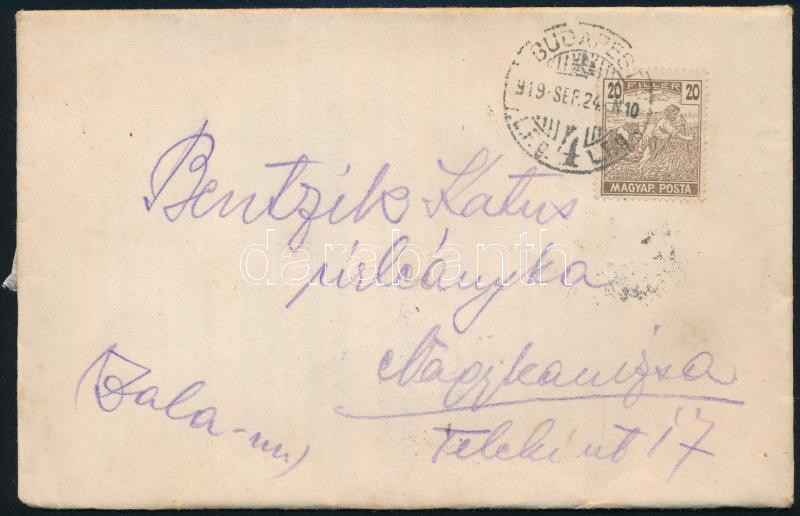 BUDAPES
919 · SEP. 24 · N10
4
20 FILLÉR 20
MAGYAR POSTA
Bentzik Katus
úrleányka
Nagykanizsa
(Zala-m)
Teleki út 17
darabanth